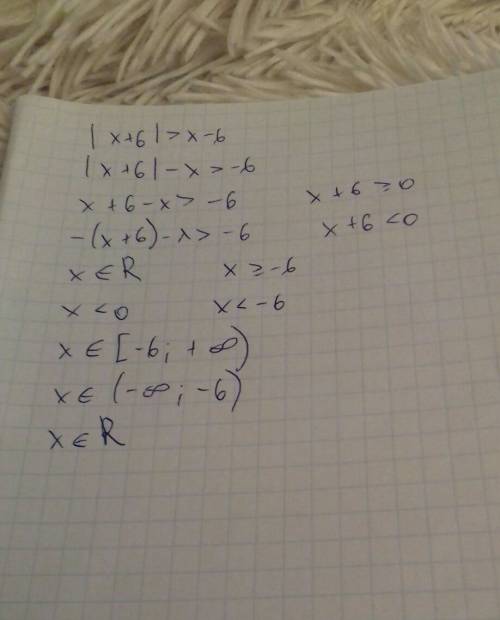 |x+6|>x-6
|x+6|-x>-6
x+6-x>-6 x+6≥0
-(x+6)-x>-6 x+6<0
x∈R x≥-6
x<0 x<-6
x∈[-6;+∞)
x∈(-∞;-6)
x∈R